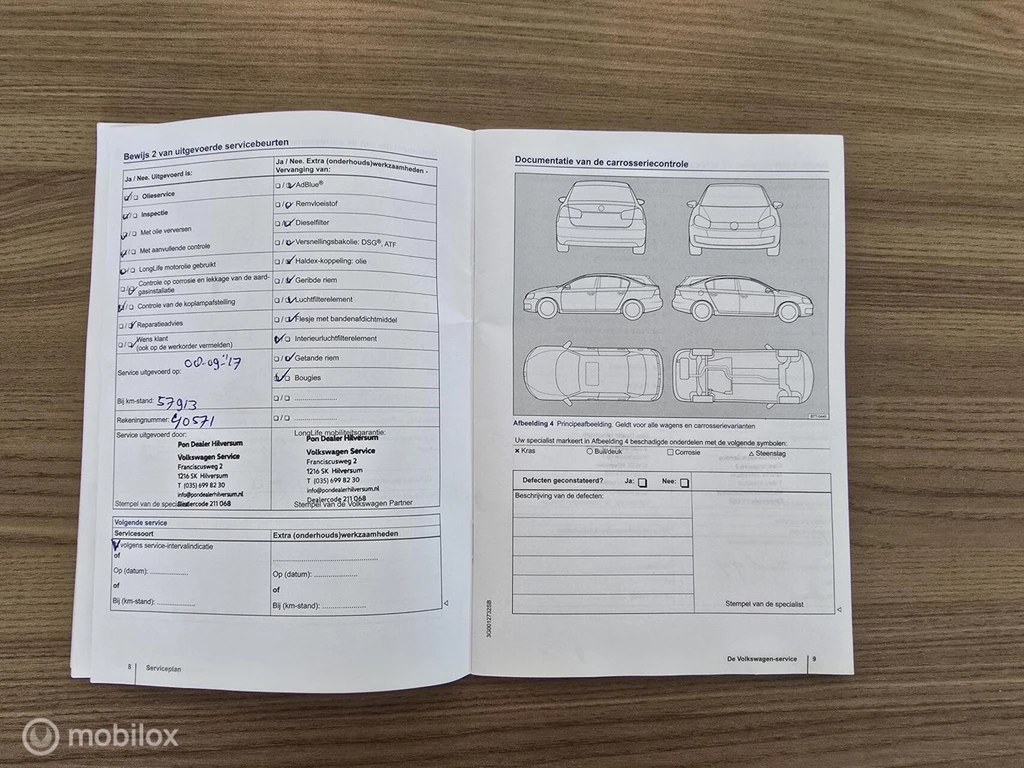 Bewijs 2 van uitgevoerde servicebeurten
Ja / Nee. Uitgevoerd is:
Olieservice
Inspectie
Met olie verversen
Met aanvullende controle
LongLife motorolie gebruikt
Controle op corrosie en lekkage van de aard-
gasinstallatie
Controle van de koplampafstelling
Reparatieadvies
Wens klant
(ook op de werkorder vermelden)
Service uitgevoerd op: 08-09-'17
Bij km-stand: 57913
Rekeningnummer: 40571
Service uitgevoerd door:
Pon Dealer Hilversum
Volkswagen Service
Franciscusweg 2
1216 SK Hilversum
T (035) 699 82 30
info@pondealerhilversum.nl
Dealercode 211 068
Stempel van de specialist
Ja / Nee. Extra (onderhouds)werkzaamheden -
Vervanging van:
AdBlue®
Remvloeistof
Dieselfilter
Versnellingsbakolie: DSG®, ATF
Haldex-koppeling: olie
Geribde riem
Luchtfilterelement
Flesje met bandenafdichtmiddel
Interieurluchtfilterelement
Getande riem
Bougies
LongLife mobiliteitsgarantie:
Pon Dealer Hilversum
Volkswagen Service
Franciscusweg 2
1216 SK Hilversum
T (035) 699 82 30
info@pondealerhilversum.nl
Dealercode 211 068
Stempel van de Volkswagen Partner
Volgende service
Servicesoort
Extra (onderhouds)werkzaamheden
volgens service-intervalindicatie
of
Op (datum): ..................
of
Bij (km-stand): ..................
Op (datum): ..................
of
Bij (km-stand): ..................
8 Serviceplan
Documentatie van de carrosseriecontrole
Afbeelding 4 Principeafbeelding. Geldt voor alle wagens en carrosserievarianten
Uw specialist markeert in Afbeelding 4 beschadigde onderdelen met de volgende symbolen:
× Kras ○ Buil/deuk □ Corrosie △ Steenslag
Defecten geconstateerd? Ja: Nee:
Beschrijving van de defecten:
Stempel van de specialist
3G0012732SB
De Volkswagen-service 9
mobilox